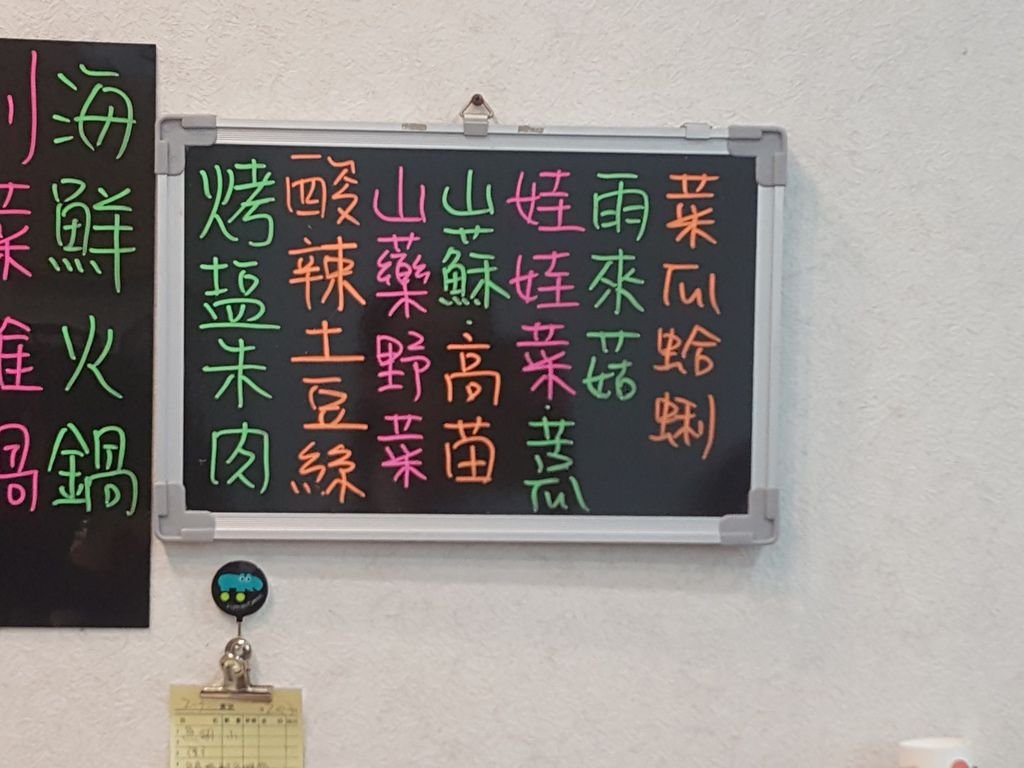 菜瓜蛤蜊
雨來菇
娃娃菜·苦瓜
山蘇·高苗
山藥野菜
酸辣土豆絲
烤塩朱肉
海鮮火鍋